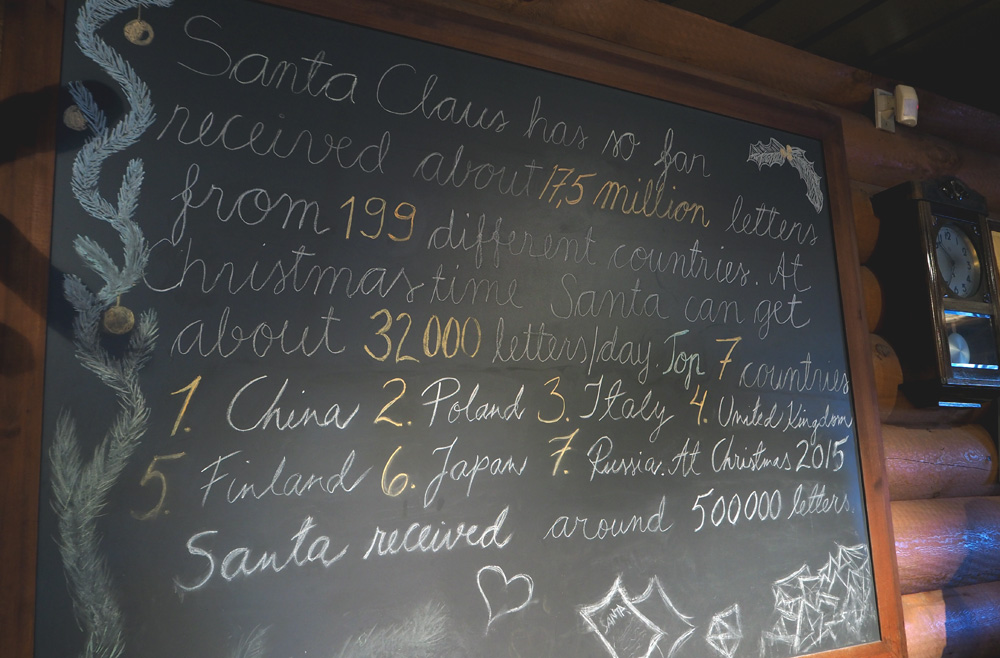 Santa Claus has so far
received about 17,5 million letters
from 199 different countries. At
Christmas time Santa can get
about 32 000 letters/day. Top 7 countries
1. China 2. Poland 3. Italy 4. United Kingdom
5. Finland 6. Japan 7. Russia. At Christmas 2015
Santa received around 500 000 letters.
SANTA